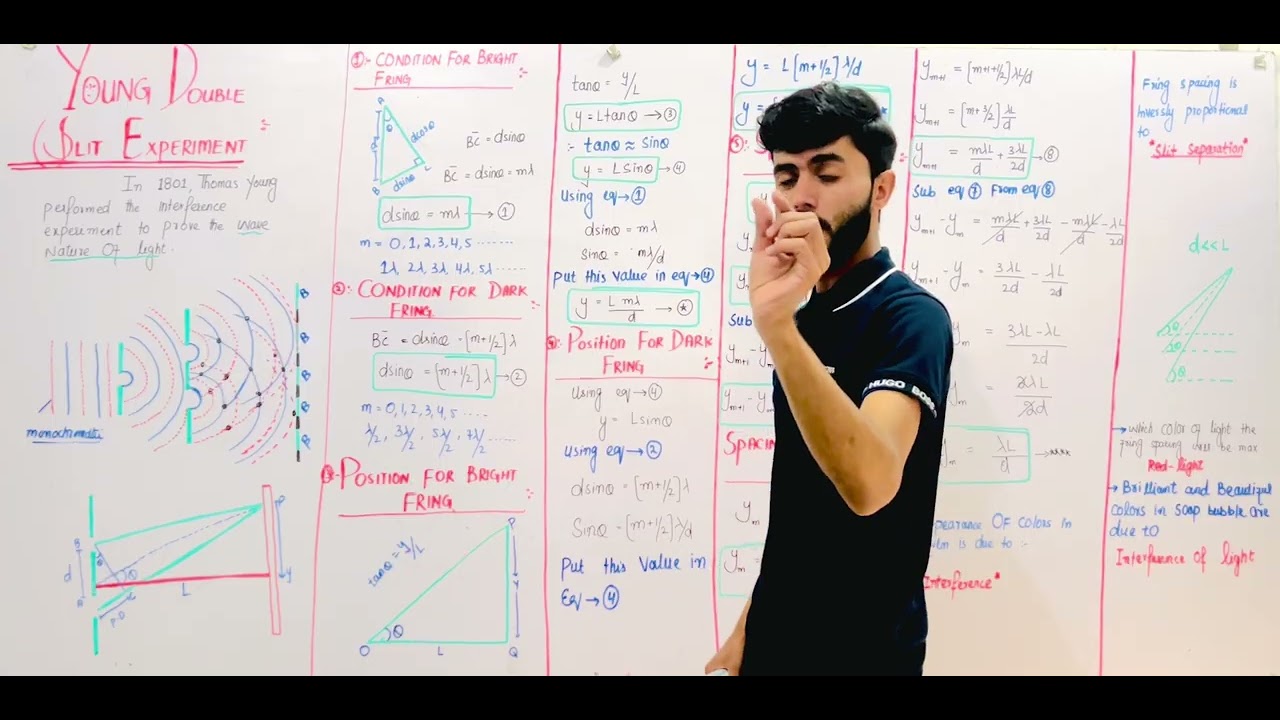 YOUNG DOUBLE
SLIT EXPERIMENT :-
In 1801, Thomas Young
performed the interference
experiment to prove the wave
Nature Of light.
B
B
B
B
B
monochromatic
P
S
d
θ
θ
L
y
P.D
①:- CONDITION FOR BRIGHT
FRING :-
A
θ
d
dcosθ
B
dsinθ
BC = dsinθ
BC = dsinθ = mλ
dsinθ = mλ → ①
m = 0, 1, 2, 3, 4, 5 ......
1λ, 2λ, 3λ, 4λ, 5λ ......
②:- CONDITION FOR DARK
FRING :-
BC = dsinθ = [m+1/2]λ
dsinθ = [m+1/2]λ → ②
m = 0, 1, 2, 3, 4, 5 .....
λ/2, 3λ/2, 5λ/2, 7λ/2 ......
POSITION FOR BRIGHT
FRING :-
tanθ = y/L
P
y
θ
O L Q
tanθ = y/L
y = Ltanθ → ③
∴ tanθ ≈ sinθ
y = LSinθ → ④
Using eq → ①
dsinθ = mλ
sinθ = mλ/d
Put this value in eq → ④
y = L mλ/d → *
④:- POSITION FOR DARK
FRING :-
Using eq → ④
y = Lsinθ
using eq → ②
dsinθ = [m+1/2]λ
Sinθ = [m+1/2]λ/d
Put this Value in
Eq → ④
y = L[m+1/2]λ/d
y =
Sub
SPACIN
yₘ
yₘ =
yₘ₊₁ = [m+1+1/2]λL/d
yₘ₊₁ = [m+3/2]λL/d
yₘ₊₁ = mλL/d + 3λL/2d → ⑧
Sub eq ⑦ From eq ⑧
yₘ₊₁ - yₘ = mλL/d + 3λL/2d - mλL/d - λL/2d
yₘ₊₁ - yₘ = 3λL/2d - λL/2d
yₘ = 3λL - λL/2d
yₘ = 2λL/2d
yₘ = λL/d → ****
OF COLORS in
is due to :-
Interference"
HUGO BOSS
Fring spacing is
Inversly proportional
to
"Slit separation"
d<<L
θ
θ
θ
→ which color of light the
fring spacing will be max
Red-light
→ Brilliant and Beautiful
colors in soap bubble are
due to
Interference of light